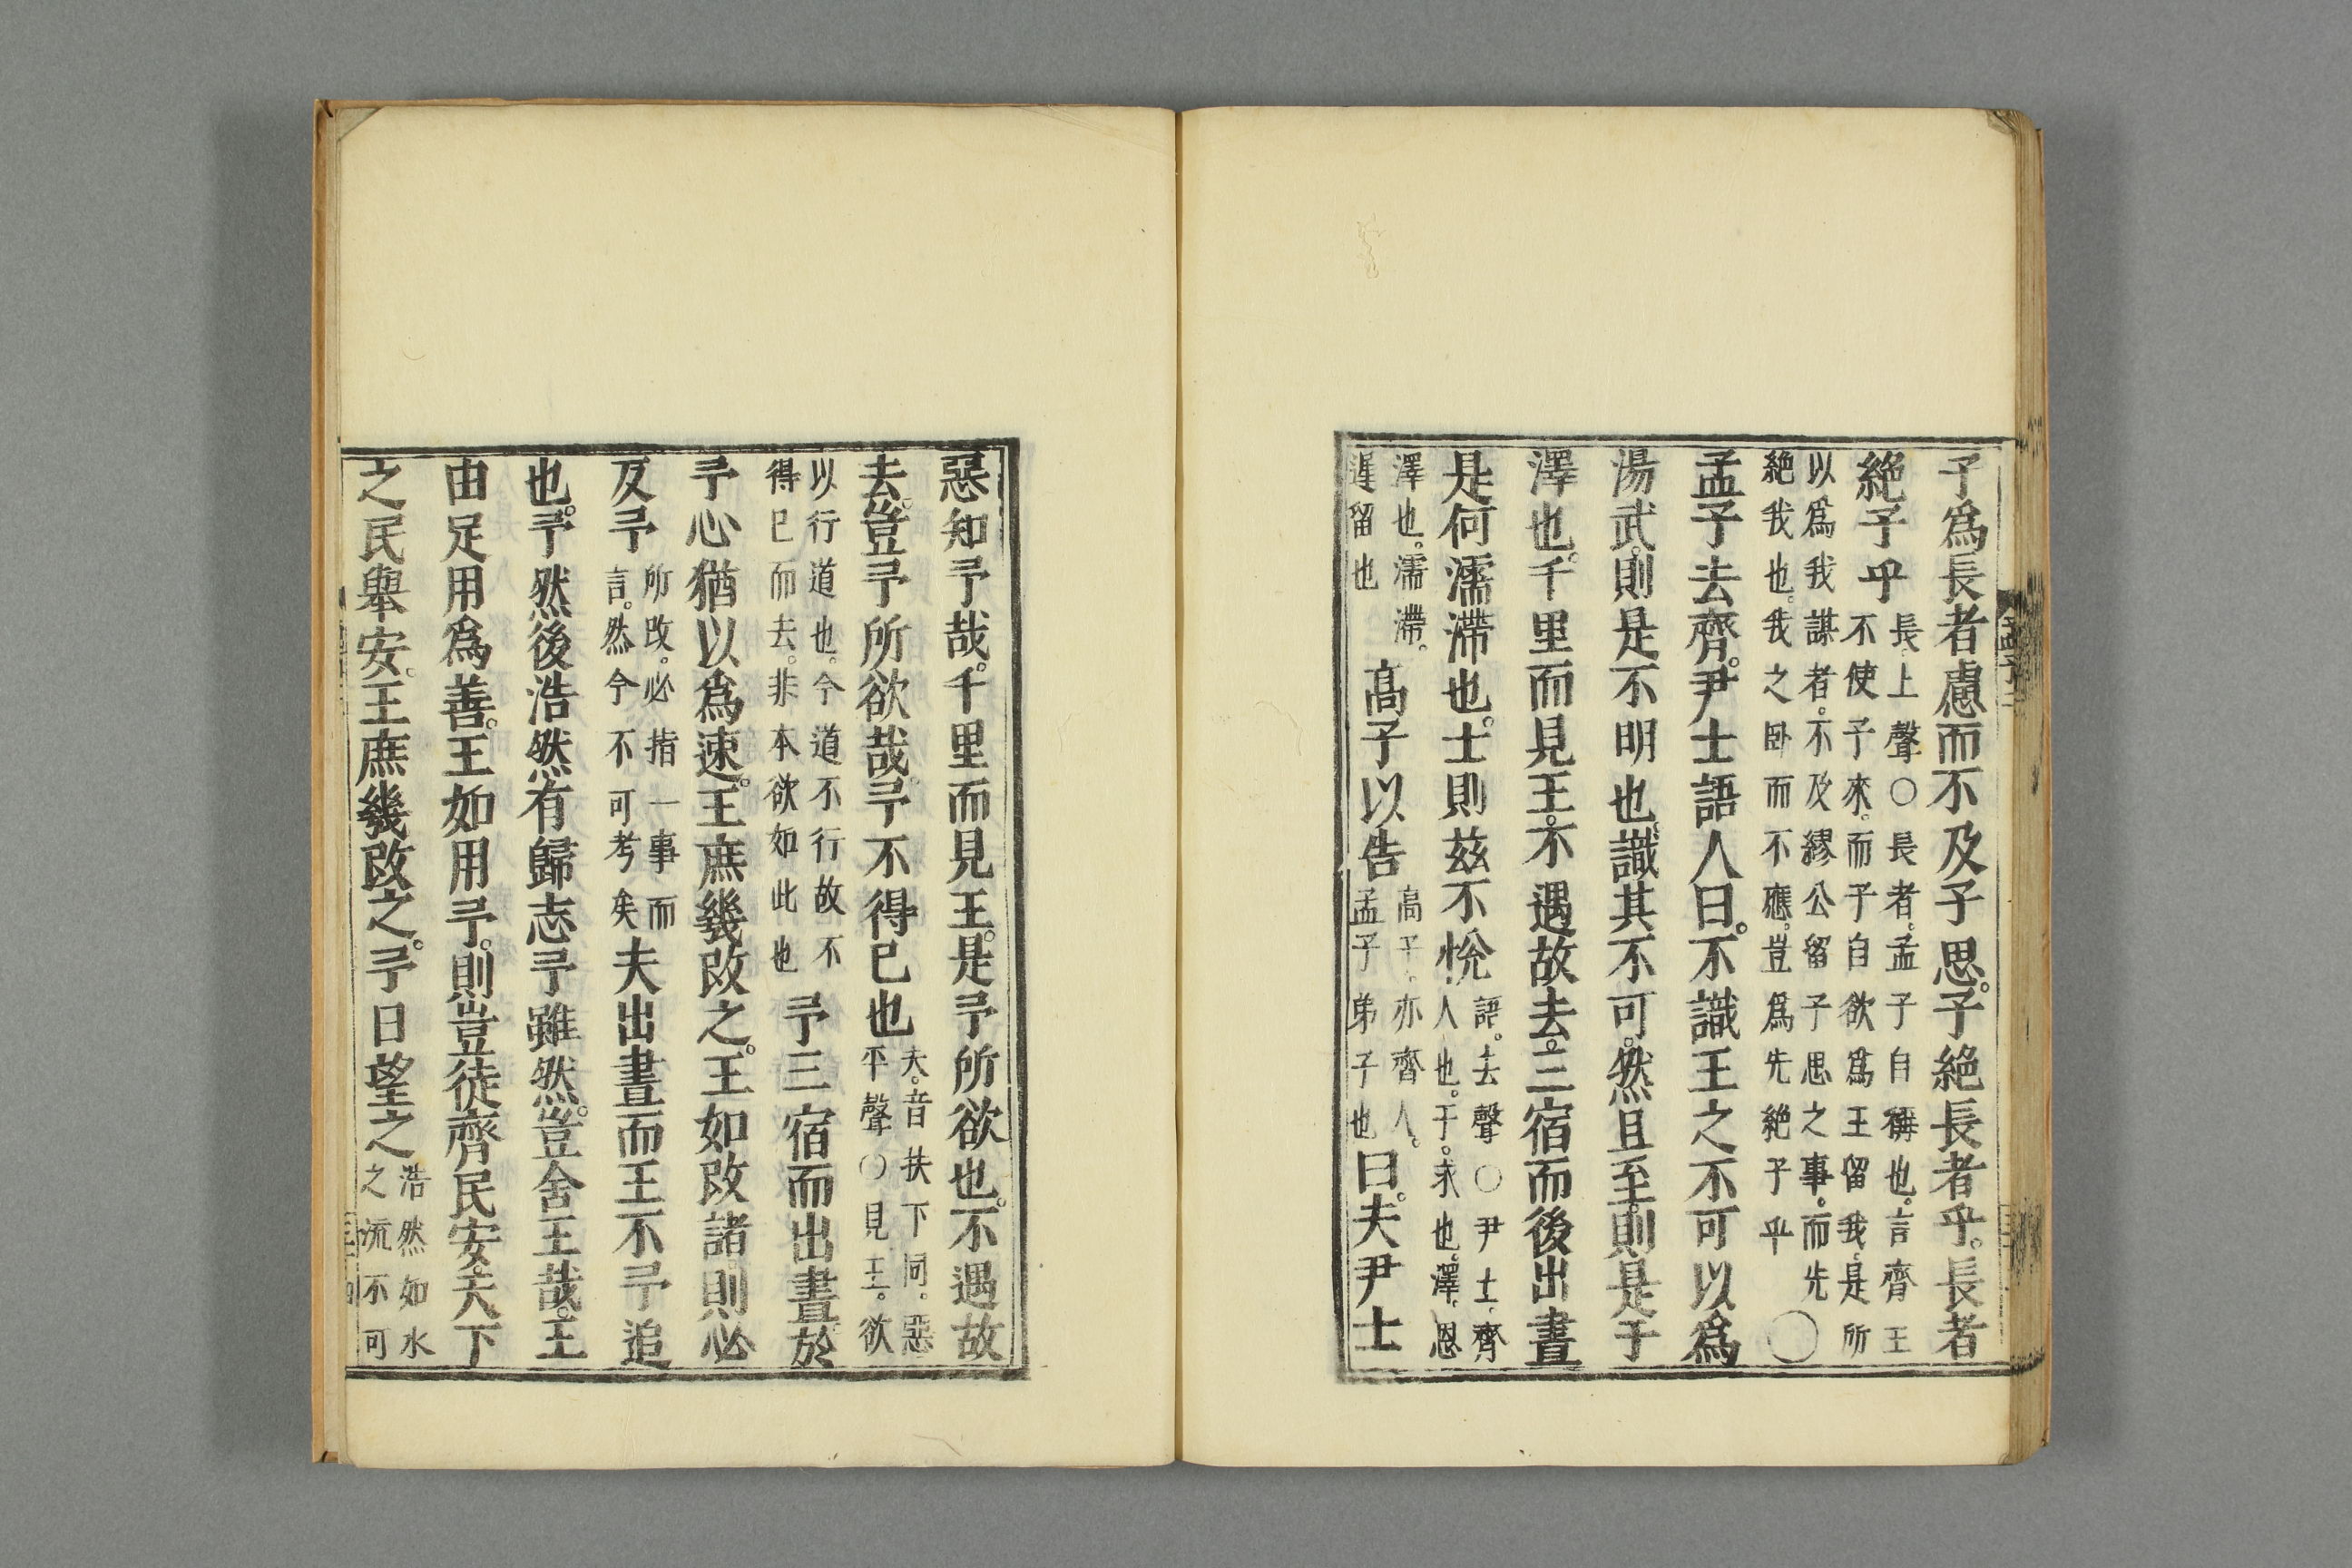 子爲長者慮而不及子思。子絶長者乎。長者
絶子乎長、上聲○長者。孟子自稱也。言齊王不使子來。而子自欲爲王留我。是所
以爲我謀者。不及繆公留子思之事。而先絶我也。我之卧而不應。豈爲先絶子乎○
孟子去齊。尹士語人曰。不識王之不可以爲
湯武。則是不明也。識其不可。然且至。則是于
澤也。千里而見王。不遇故去。三宿而後出晝
是何濡滯也。士則茲不悅語。去聲○尹士、齊人也。于。求也。澤、恩
澤也。濡滯。遲留也高子以告高子、亦齊人。孟子弟子也曰。夫尹士
惡知予哉。千里而見王。是予所欲也。不遇故
去。豈予所欲哉。予不得已也夫。音扶下同。惡平聲○見王。欲
以行道也。今道不行故不得已而去。非本欲如此也予三宿而出晝於
予心猶以爲速。王庶幾改之。王如改諸。則必
反予所改。必指一事而言。然今不可考矣夫出晝而王不予追
也。予然後浩然有歸志予雖然。豈舍王哉。王
由足用爲善。王如用予。則豈徒齊民安。天下
之民舉安。王庶幾改之。予日望之浩然如水之流不可